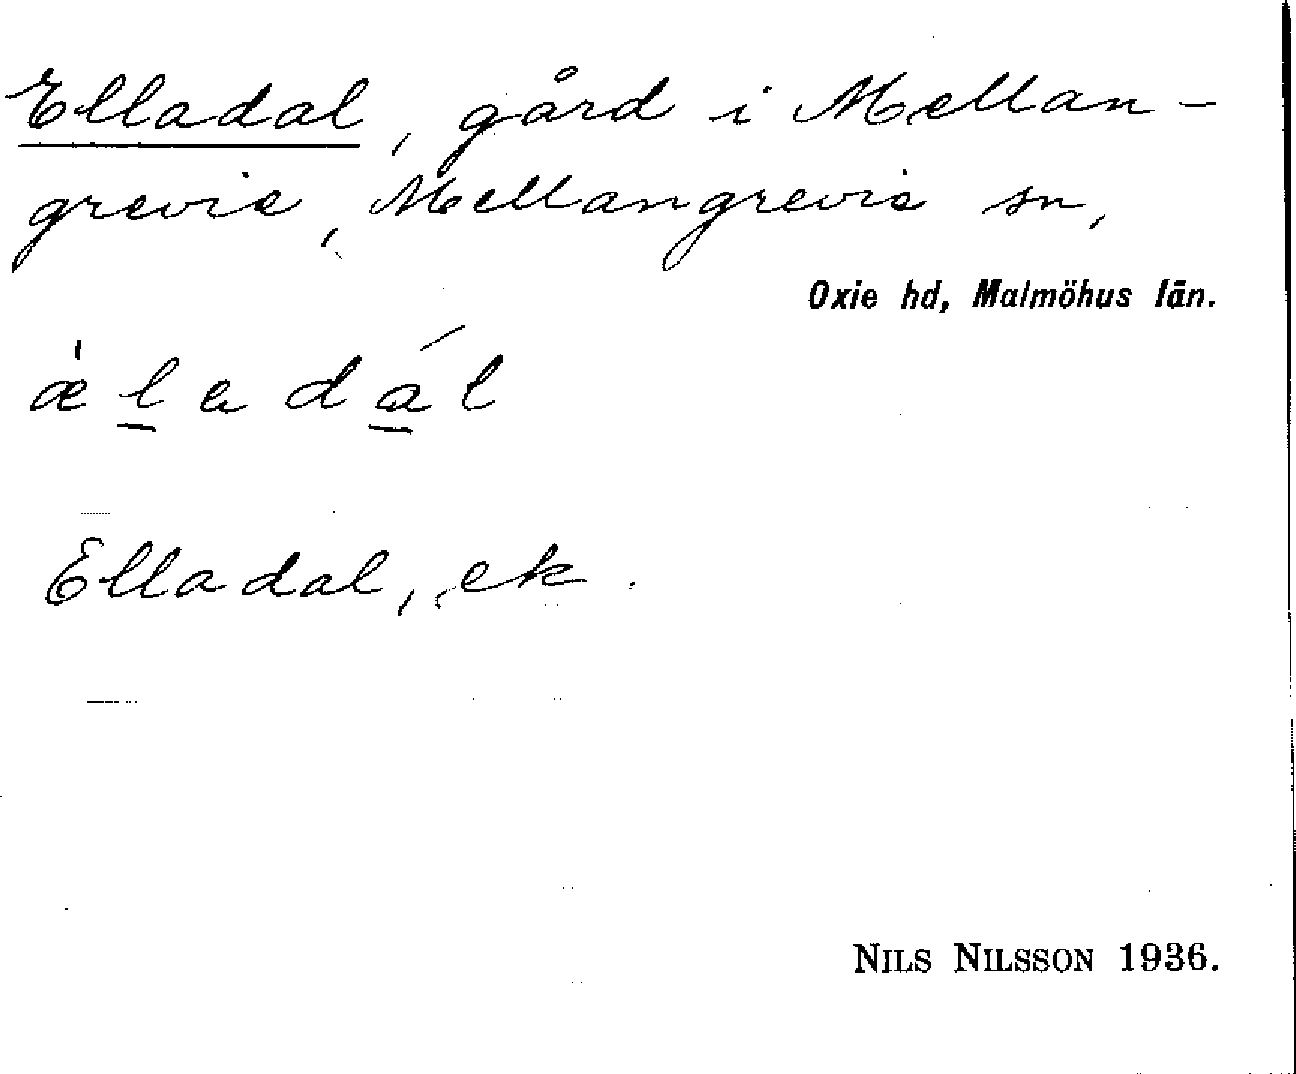 Elladal, gård i Mellan-
grevie, Mellangrevie sn,
Oxie hd, Malmöhus län.
æ̍l̲adá̲l
Elladal, ek.
NILS NILSSON 1936.